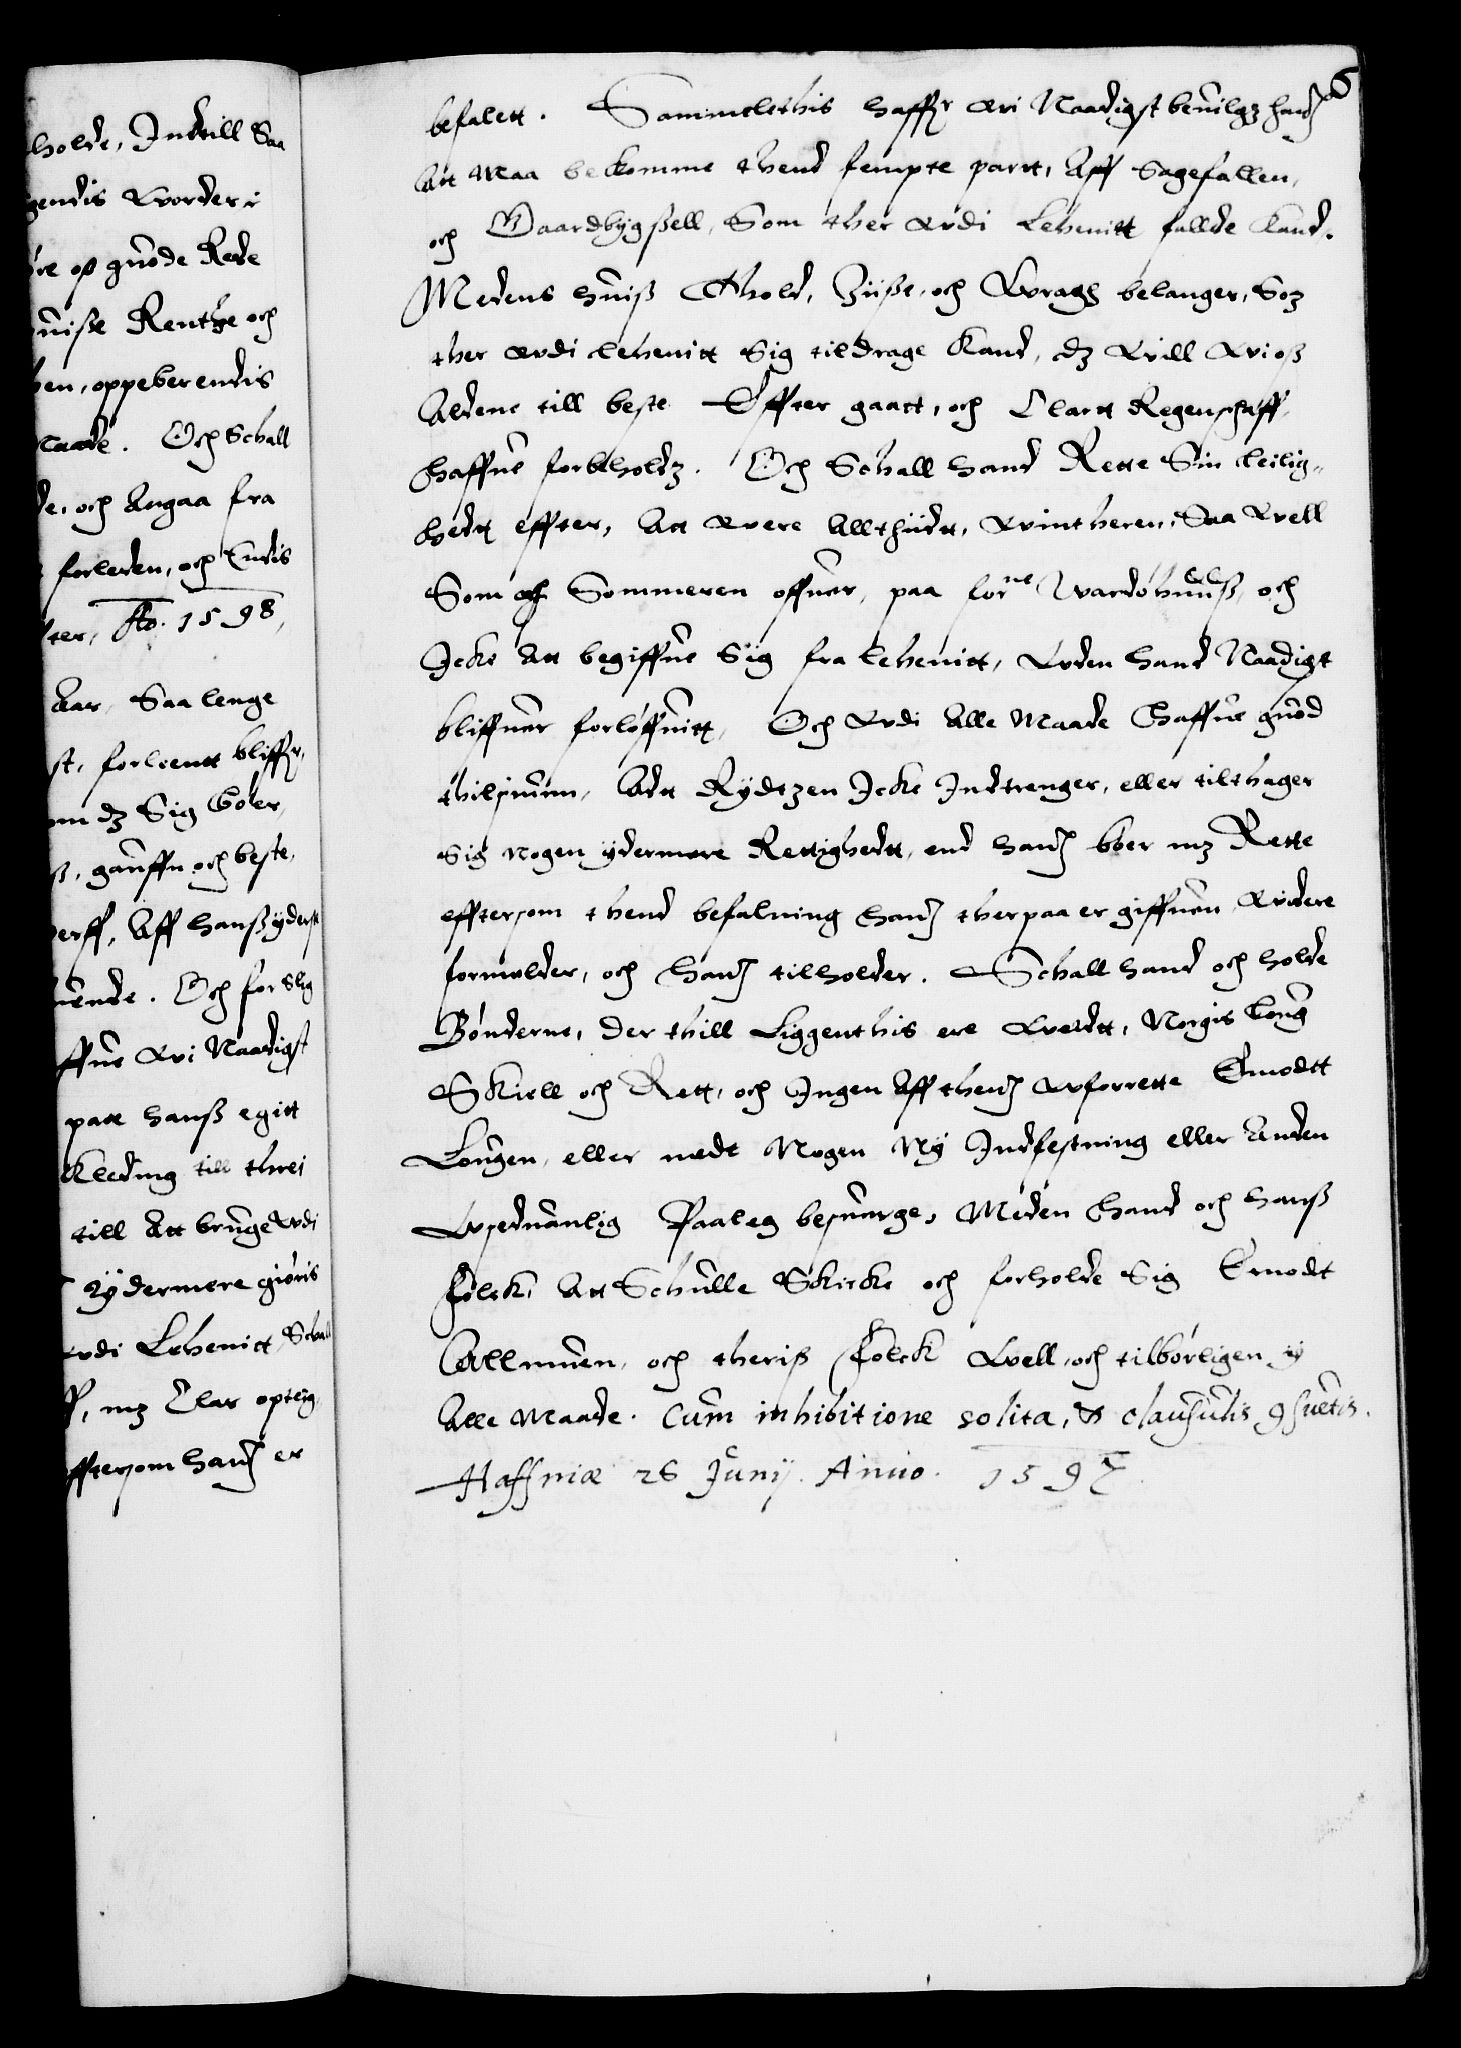 6
befalett. Sammelethis haffr wi Naadigst beuilgz hand
Att Maa bekomme thend fempte partt, Aff Sagefallen,
och Gaardbygsell, Som ther vdi Lehenitt fallde kand.
Medens huiss Thold, Siisse, och Wragh belanger, Som
ther vdi lehenitt Sig tildrage kand, dz will wi oss
Aldene till beste Effter gaatt, och Clartt Regenschaff,
haffue forbeholdz. Och Schall hand Rette Sin leilig-
hedt effter, Att were Allthiidt, Wintheren, Saa well
Som Sommeren offuer, paa forne Wardøhuuss, och
Icke Att begiffue Sig fra lehenitt, Vden hand Naadigst
bliffuer forløffuitt, Och vdi Alle Maade Haffue guod
thilsiuun, Adt Rydtzen Icke Indtrenger, eller tilthager
Sig nogen ydermere Rettighedt, end hand bøer mz Rette
efftersom thend befalning hand therpaa er giffuen widere
formelder, och hand tilholder. Schall hand och holde
Bønderne, der thill Liggenthis ere werdt, Norgis Loug
Skiell och Rett, och Ingen Aff thend wforrette Emodtt
Lougen, eller medt Nogen Ny Indfestning eller Anden
Vseduanlig Paaleg besuerge, Meden hand och hanss
Folck, Att Schulle Skicke och forholde Sig Emodt
Allmuen, och theriss Folck well, och tilbørligen y
Alle Maade. Cum inhibitione solita, & clausulis 9suetis.
Haffniæ 26 Junij. Anno. 1597
holde, Indtill Saa
gendis worder
op guode Rede
uisse Rentthe och
oppeberendis
Maade. Och Schall
och Angaa fra
forleden, och Endis
Ao. 1598,
Aar, Saa lenge
forleentt bliffr,
om dz Sig bøer,
gauffn och beste,
Aff hanss yderste
Och for slig
wi Naadigst
paa hanss egitt
Kleding till threi
till Att bruge vdi
Yydermere giøris
vdi Lehenitt, Schall
mz Clar opteig,
efftersom hand er